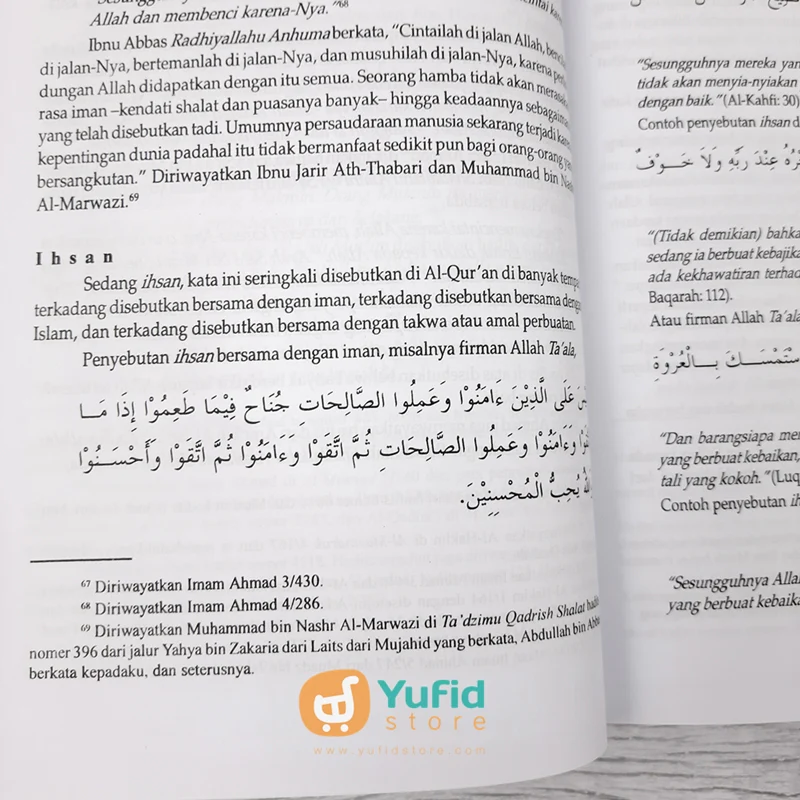 Allah dan membenci karena-Nya."⁶⁸
Ibnu Abbas Radhiyallahu Anhuma berkata, "Cintailah di jalan Allah,
di jalan-Nya, bertemanlah di jalan-Nya, dan musuhilah di jalan-Nya, karena
dungan Allah didapatkan dengan itu semua. Seorang hamba tidak akan
rasa iman –kendati shalat dan puasanya banyak– hingga keadaannya
yang telah disebutkan tadi. Umumnya persaudaraan manusia sekarang terjadi
kepentingan dunia padahal itu tidak bermanfaat sedikit pun bagi orang-orang
bersangkutan." Diriwayatkan Ibnu Jarir Ath-Thabari dan Muhammad bin Nashr
Al-Marwazi.⁶⁹
Ihsan
Sedang ihsan, kata ini seringkali disebutkan di Al-Qur'an di banyak
terkadang disebutkan bersama dengan iman, terkadang disebutkan bersama
Islam, dan terkadang disebutkan bersama dengan takwa atau amal perbuatan.
Penyebutan ihsan bersama dengan iman, misalnya firman Allah Ta'ala,
عَلَى الَّذِيْنَ ءَامَنُوْا وَعَمِلُوا الصَّالِحَاتِ جُنَاحٌ فِيْمَا طَعِمُوْا إِذَا مَــا
وَءَامَنُوْا وَعَمِلُوا الصَّالِحَاتِ ثُمَّ اتَّقَوْا وَءَامَنُوْا ثُمَّ اتَّقَوْا وَأَحْسَــنُوْا
يُحِبُّ الْمُحْسِنِيْنَ.
⁶⁷ Diriwayatkan Imam Ahmad 3/430.
⁶⁸ Diriwayatkan Imam Ahmad 4/286.
⁶⁹ Diriwayatkan Muhammad bin Nashr Al-Marwazi di Ta'dzimu Qadrish Shalat
nomer 396 dari jalur Yahya bin Zakaria dari Laits dari Mujahid yang berkata, Abdullah bin
berkata kepadaku, dan seterusnya.
"Sesungguhnya mereka
tidak akan menyia-nyiakan
dengan baik." (Al-Kahfi: 30)
Contoh penyebutan ihsan
عِنْدَ رَبِّهِ وَلاَ خَــوْفٌ
"(Tidak demikian)
sedang ia berbuat
ada kekhawatiran
Baqarah: 112).
Atau firman Allah Ta'ala
بِــالْعُرْوَةِ
"Dan barangsiapa
yang berbuat kebaikan,
tali yang kokoh." (Luq
Contoh penyebutan
"Sesungguhnya
yang berbuat
Yufid
store
www.yufidstore.com